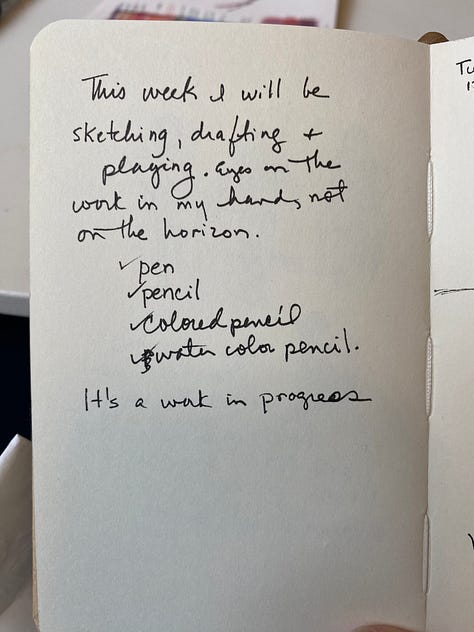 This week I will be
sketching, drafting +
playing. Eyes on the
work in my hands, not
on the horizon.
✓pen
✓pencil
✓colored pencil
✓water color pencil.
It's a work in progress
Tu